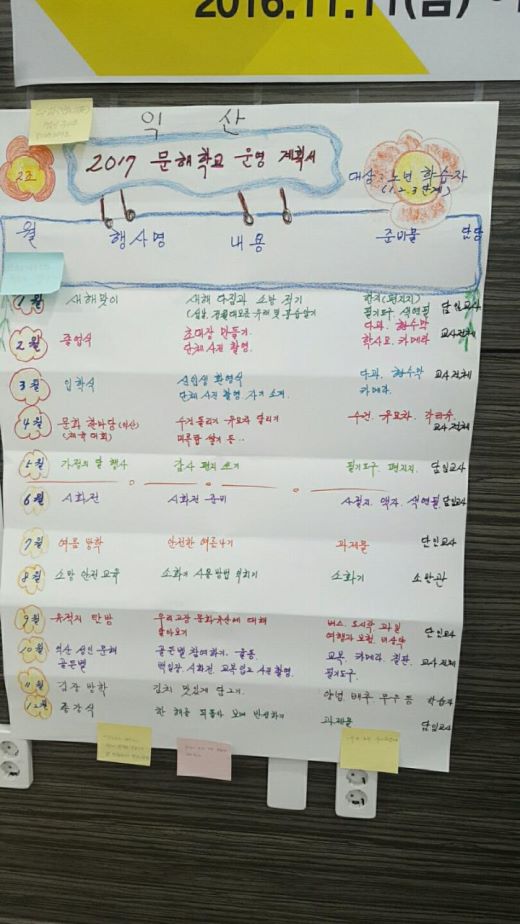 2016.11.11(금)
익 산
2조
2017 문해학교 운영 계획서
대상: 노년 학습자
(1.2.3단계)
월 행사명 내용 준비물 담당
1월 새해맞이 새해 다짐과 소망 적기 편지(편지지) 담임교사
필기도구. 색연필
2월 졸업식 초대장 만들기. 다과. 현수막 교사전체
단체사진 촬영. 학사모. 카메라
3월 입학식 신입생 환영식 다과. 현수막 교사전체
단체사진 촬영. 자기소개. 카메라.
4월 문화 한마당(익산) 수건 돌리기. 유모차 달리기 수건. 유모차.
(체육대회) 교사전체
5월 가정의 달 행사 감사 편지 쓰기 필기도구. 편지지. 담임교사
6월 시화전 시화전 준비 액자. 색연필 담임교사
7월 여름 방학 안전한 여름나기 과제물 담임교사
8월 소방 안전 교육 소화기 사용방법 익히기 소화기 소방관
9월 유적지 탐방 우리고장 문화유산에 대해 버스. 도시락 과일 담임교사
알아보기
10월 익산 성인 문해 골든벨 참여하기. 교복. 카메라. 칠판. 교사전체
골든벨 백일장. 시화전. 교복입고 사진촬영. 필기도구.
11월 김장 방학 김치 맛있게 담그기. 양념. 배추. 무우 등 학습자
12월 종강식 한 해를 되돌아 보며 반성하기 과제물 담임교사